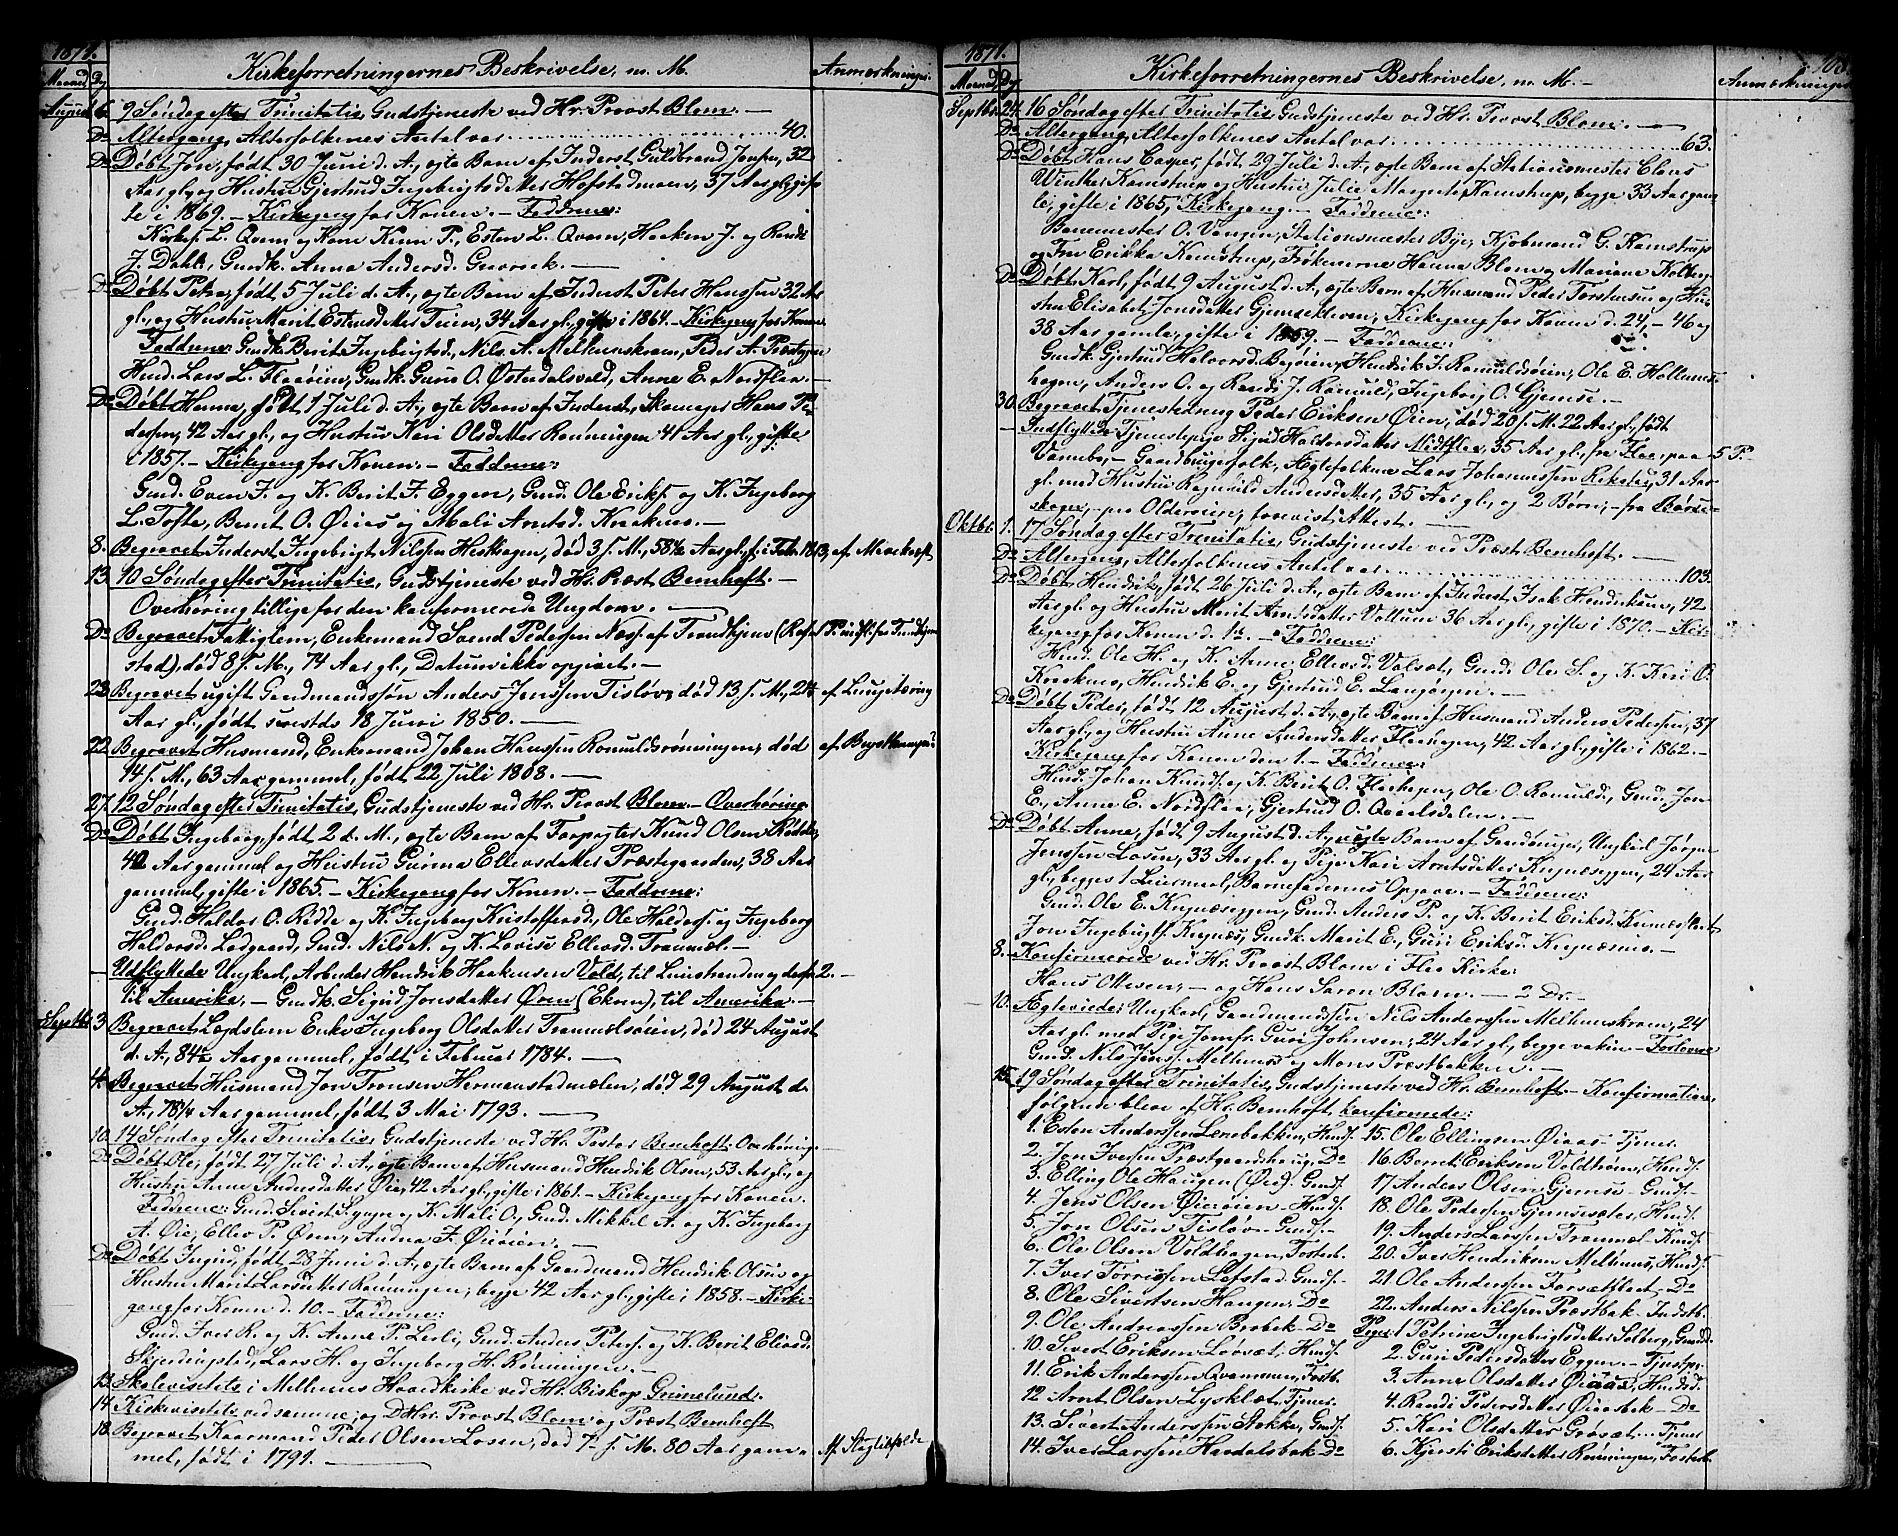 1871.
Maaned Dag Kirkeforretningernes Beskrivelse, m. M. Anmærkninger
August 6. 9 Søndag efter Trinitatis, Gudstjeneste ved Hr. Provst Blom. —
Do Altergang, Alterfolkenes Antal var 40.
Do Døbt Jon, født 30 Juni d. A., ægte Barn af Inderst Guldbrand Jonsen, 32
Aar gl. og Hustru Gjertrud Ingebrigtsdatter Hofstadmoen, 37 Aar gl., gif-
te i 1869. — Kirkegang for Konen. — Faddrene:
Kirkes. L. Qvam og Kone Karen P., Esten L. Qvam, Haaken J. og Randi
J. Dahl, Gmdk. Anna Andersd.
Do Døbt Petra, født 5 Juli d. A., ægte Barn af Inderst Peter Hanssen 32 Aar
gl., og Hustru Marit Estensdatter Teien, 34 Aar gl., gifte i 1864. — Kirkegang for Konen
Faddrene: Gmdk. Berit Ingebrigtsd., Nils A. Melhuuskram, Peder A. Præstegaa
Hmd. Lars L. Flaaøien, Gmdk. Guro O. Østerdalsvold, Anne E. Nordflaa. —
Do Døbt Hanna, født 1 Juli d. A., ægte Barn af Inderst, Skomager Hans Pe-
dersen, 42 Aar gl., og Hustru Kari Olsdatter Rønningen 41 Aar gl., gifte
i 1857. — Kirkegang for Konen. — Faddrene:
Gmd. Even F. og K. Berit F. Eggen, Gmd. Ole Eriks. og K. Ingeborg
L. Tofte, Bernt O. Øiaas og Mali Arntsd. Kraaknes. —
8. Begravet Inderst Ingebrigt Nilssen Hesthagen, død 3 s. M., 58½ Aar gl., f. i Febr. 1813, af
13. 10 Søndag efter Trinitatis, Gudstjeneste ved Hr. Præst Bernhoft. —
Overhøring tillige for den konfirmerede Ungdom. —
Do Begravet Fattiglem, Enkemand Svend Pedersen Næss af Trondhjem (Rof-
stad), død 8 s. M., 74 Aar gl., Datum ikke opgivet. —
22. Begravet ugift Gaardmandssøn Anders Jenssen Tisløv, død 13 s. M., 21 af Lungetæring
Aar gl., født 18 Juni 1850. —
22. Begravet Husmand, Enkemand Johan Hanssen Romuldsrønningen, død af
14 s. M., 63 Aar gammel, født 22 Juli 1808. —
27. 12 Søndag efter Trinitatis, Gudstjeneste ved Hr. Provst Blom — Overhøring
Do Døbt Ingeborg, født 2 d. M., ægte Barn af Forpagter Knud Olsen Ridde,
42 Aar gammel og Hustru Gurina Ellevsdatter Præstegaarden, 38 Aar
gammel, gifte i 1865. — Kirkegang for Konen. — Faddrene:
Gmd. Haldor O. Ridde og K. Ingeborg Kristoffersd., Ole Haldors. og Ingeborg
Haldorsd. Ledgaard, Gmd. Nils N. og K. Lovise Ellevsd. Trammæl. —
Udflyttede Ungkarl, Arbeider Hendrik Haakensen Vold, til Leinstranden og derfra 2. —
til Amerika. — Gmdk. Sigrid Jonsdatter Øren (Ekren), til Amerika. —
Septbr. 3. Begravet Lægdslem Enke Ingeborg Olsdatter Trammelsøien, død 24 August
d. A., 87½ Aar gammel, født i Februar 1784. —
4. Begravet Husmand Jon Tronsen Hermanstadmælen, død 29 August d.
A., 78¼ Aar gammel, født 3 Mai 1793. —
10. 14 Søndag efter Trinitatis, Gudstjeneste ved Hr. Pastor Bernhoft. Overhøring. —
Do Døbt Ole, født 27 Juli d. A., ægte Barn af Husmand Hendrik Olsen, 53 Aar gl., og
Hustru Anne Andersdatter Øie, 42 Aar gl., gifte i 1861. — Kirkegang for Konen.
Faddrene: Gmd. Sivert S. og K. Mali O., Gmd. Mikkel A. og K. Ingeborg
A. Øie, Ellev P. Øren, Andrea F. Øieøien. —
Do Døbt Ingrid, født 28 Juni d. A., ægte Barn af Gaardmand Hendrik Olsen og
Hustru Marit Larsdatter Rønningen, begge 42 Aar gl., gifte i 1858. — Kirke-
gang for Konen d. 10. — Faddrene:
Gmd. Iver R. og K. Anne P. Lerli, Gmd. Anders Peters. og K. Berit Eliasd.
Skjerdingstad, Lars H. og Ingeborg H. Rønningen. —
13. Skolevisitats i Melhuus Hovedkirke ved Hr. Biskop Grimelund.
14. Kirkevisitats ved samme, og DHr. Provst Blom og Præst Bernhoft
18. Begravet Kaarmand Peder Olsen Losen, død 7 s. M. 80 Aar gam-
mel, født i 1791. —
1871.
Maaned Dag Kirkeforretningernes Beskrivelse, m. M. — Anmærkninger
Septbr. 24. 16 Søndag efter Trinitatis, Gudstjeneste ved Hr. Provst Blom. —
Do Altergang, Alterfolkenes Antal var 63.
Do Døbt Hans Casper, født 29 Juli d. A., ægte Barn af Stationsmester Claus
Winther Kamstrup og Hustru Julie Margrete Kamstrup, begge 33 Aar gam-
le, gifte i 1865, Kirkegang. — Faddrene:
Banemester O. Vangen, Stationsmester Bye, Kjøbmand G. Kamstrup
og Fru Erikka Kamstrup, Frøkenerne Hanna Blom og Mariane Kolberg.
Do Døbt Karl, født 9 August d. A., ægte Barn af Husmand Peder Torstensen og Hu-
stru Elisabet Jonsdatter Gjemseleren, Kirkegang for Konen d. 24, — 46 og
38 Aar gamle, gifte i 1859. — Faddrene:
Gmdk. Gjertrud Halvorsd. Bagøien, Hendrik J. Romuldsøien, Ole E. Hollums-
hagen, Anders O. og Randi J. Romuld, Ingeborg O. Gjemse. —
30. Begravet Tjenestedreng Peder Eriksen Øien, død 20 s. M. 22 Aar gl., født
Indflyttede Tjenestepige Sigrid Haldorsdatter Midtflaa, 35 Aar gl., fra Flaa, paa 5 P. —
Vannebo, — Gaardbrugerfolk, Ægtefolkene Lars Johannessen 31 Aar
gl. med Hustru Ragnhild Andersdatter, 35 Aar gl., og 2 Børn, — fra Børse-
skogn, — paa forevist Attest. —
Oktbr. 1. 17 Søndag efter Trinitatis, Gudstjeneste ved Præst Bernhoft. —
Do Altergang, Alterfolkenes Antal var 103.
Do Døbt Hendrik, født 26 Juli d. A., ægte Barn af Inderst Isak Hendriksen, 42
Aar gl. og Hustru Marit Arntsdatter Vollum 36 Aar gl., gifte i 1870. — Kir-
kegang for Konen d. 1ste — Faddrene:
Hmd. Ole H. og K. Anne Ellevsd. Valsæt, Gmd. Ole S. og K. Kari O.
Kraaknes, Hendrik E. og Gjertrud E. Langøren. —
Do Døbt Peder, født 12 August d. A., ægte Barn af Husmand Anders Pedersen, 37
Aar gl. og Hustru Anne Andersdatter Flaahagen, 42 Aar gl., gifte i 1862. —
Kirkegang for Konen den 1. — Faddrene:
Hmd. Johan Knuds. og K. Berit O. Flaahagen, Ole O. Romuld, Gmd. Jon
E., Anne E. Nordflaa, Gjertrud O. Qvaalsdalen. —
Do Døbt Anne, født 9 August d. A., uægte Barn af Gaardbruger, Ungkarl Jørgen
Jenssen Losen, 33 Aar gl. og Pige Kari Arntsdatter Kregnæseggen, 24 Aar
gl., begges 1 Leiermaal, Barnefaderens Opgave. — Faddrene:
Gmd. Ole E. Kregnæseggen, Gmd. Anders P. og K. Berit Eriksd.
Jon Ingebrigts. Kregnæs, Gmdk. Marit E., Guri Eriksd. Kregnæsmo. —
8. Konfirmerede ved Hr. Provst Blom i Flaa Kirke:
Hans Ottesen, — og Hans Saron Blom. — 2 Dr. —
10. Ægteviede: Ungkarl, Gaardmandssøn Nils Anderssen Melhuuskram, 24
Aar gl. med Pige Jomfr. Guri Johnsen, 24 Aar gl., begge vakin — Forlovere
Gmd. Nils Jens. Melhuus og Mons Præstbakken. —
15. 19 Søndag efter Trinitatis, Gudstjeneste ved Hr. Bernhoft — Konfirmation,
følgende bleve af Hr. Bernhoft konfirmerede:
1. Esten Anderssen Lenebakken, Hmds. 15. Ole Ellingsen Øiaas — Tjener
2. Jon Iversen Præstgaardshaug, Do 16. Bernt Eriksen Voldhom, Hmds.
3. Elling Ole Haugen (Øie) Gmds. 17. Anders Olsen Gjemse — Gmds. —
4. Jens Olsen Øieøien — Hmds. 18. Ole Pedersen Gjemsesæter, Hmds.
5. Jon Olsen Tisløv — Gmds. — 19. Anders Larssen Trammæl — Hmds.
6. Ole Olsen Voldhagen, Fosters. 20. Iver Hendriksen Melhuus, Hmds.
7. Iver Torrissen Lefstad, Gmds. — 21. Ole Anderssen Forsætflaat — Do
8. Ole Sivertsen Haugen, Do 22. Anders Nilssen Præstbak — Indstb.
9. Ole Andreassen Borbek — Do Piger 1. Petrine Ingebrigtsdatter Solberg, Gmdd.
10. Sivert Eriksen Løvset, Hmds. 2. Guri Pedersdatter Eggen — Tjenstp.
11. Erik Anderssen Qvammen, Fostb. 3. Anne Olsdatter Øiaas, Hmdsd.
12. Arnt Olsen Lysklæt, Tjener 4. Randi Pedersdatter Øiaasbak — Do
13. Sivert Anderssen Stokke, Gmds. 5. Kari Olsdatter Grøsæt — Tjener
14. Iver Larssen Havdalsbak — Do 6. Kjersti Eriksdatter Rønningen, Fosterb.